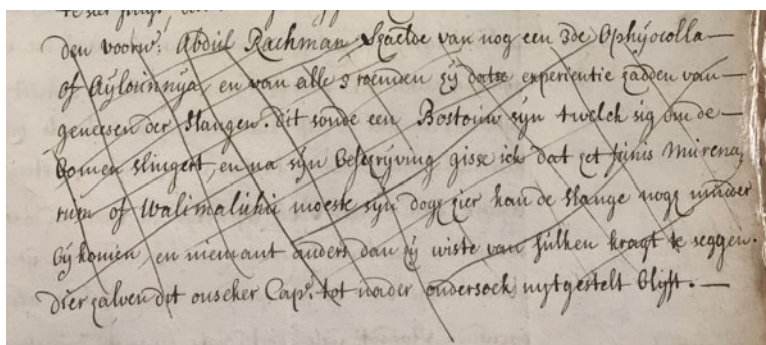 den voorn: Abdul Rachman hadde van nog een 3de Ophyocolla
of Aylounnya, en van alle 3 roemden sy datse experientie hadden van
geneesen der slangen. dit soude een Bostouw syn twelck sig om de
bomen slingert, en na syn beschryving gisse ick dat het funis Murena,
rum of Walimaluhu moeste syn doch hier kan de slange nogh minder
bykomen, en niemant anders dan sy wiste van sulken kragt te seggen.
dierhalven dit onseker Cap: tot nader ondersoek uytgestelt blyft.